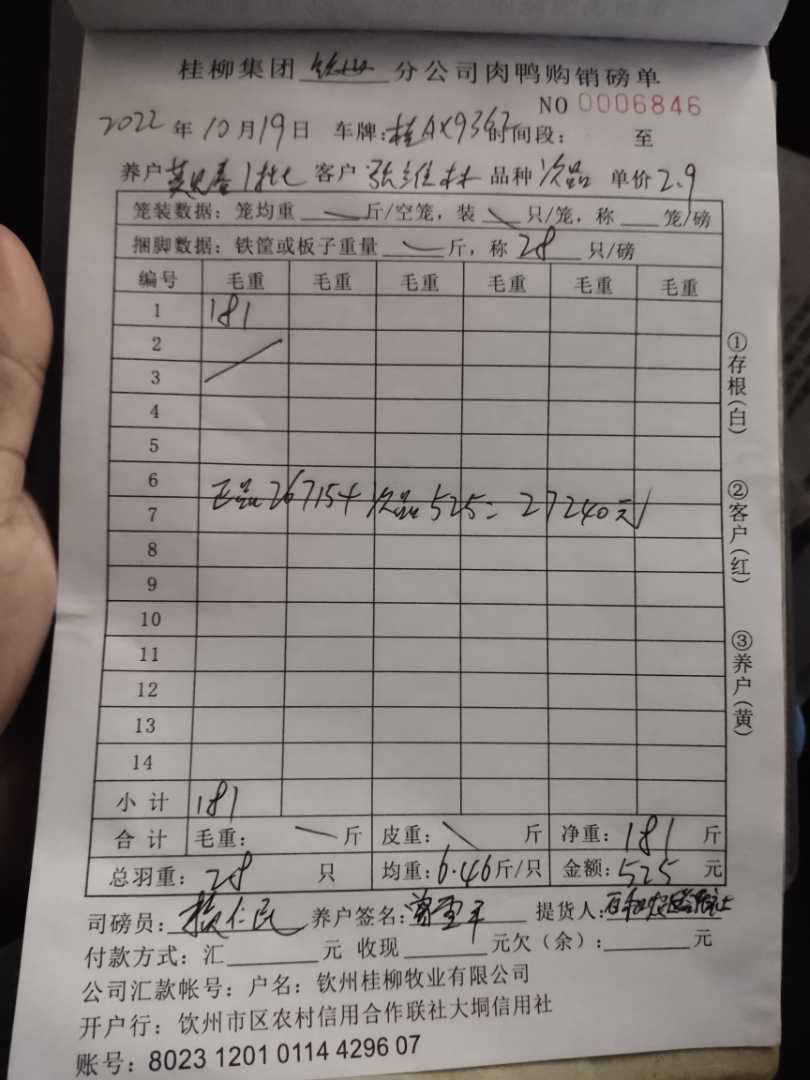 桂柳集团 钦州 分公司肉鸭购销磅单
NO 0006846
2022 年 10 月 19 日 车牌: 桂AX9367 时间段: 至
养户 1批 客户 张维林 品种 次品 单价 2.9
笼装数据: 笼均重 斤/空笼, 装 只/笼, 称 笼/磅
捆脚数据: 铁筐或板子重量 斤, 称 28 只/磅
编号 毛重 毛重 毛重 毛重 毛重 毛重
1 181
2
3
4
5
6
正品26715+次品525=27240元
7
8
9
10
11
12
13
14
小计 181
合计 毛重: 斤 皮重: 斤 净重: 181 斤
总羽重: 28 只 均重: 6.46 斤/只 金额: 525 元
①存根(白)
②客户(红)
③养户(黄)
司磅员: 仁民 养户签名: 提货人:
付款方式: 汇 元 收现 元欠(余): 元
公司汇款帐号: 户名: 钦州桂柳牧业有限公司
开户行: 钦州市区农村信用合作联社大垌信用社
账号: 8023 1201 0114 4296 07